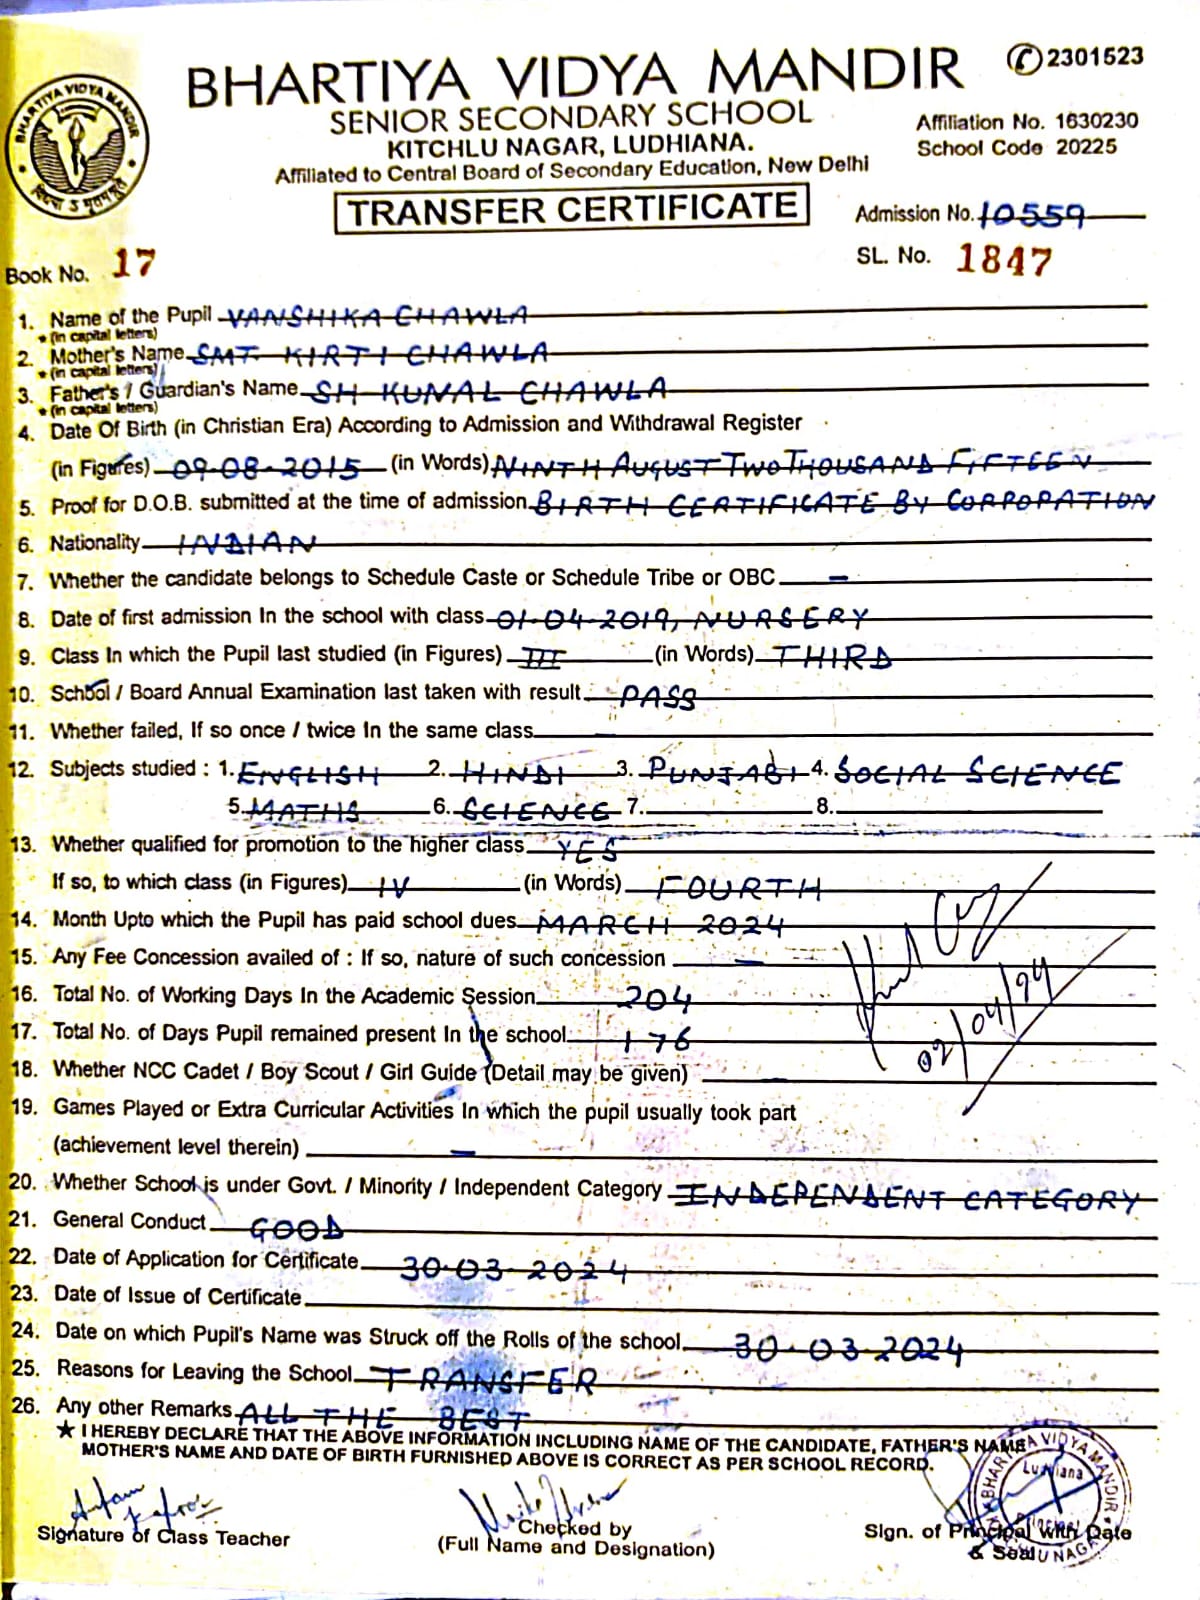 BHARTIYA VIDYA MANDIR
✆2301523
SENIOR SECONDARY SCHOOL
KITCHLU NAGAR, LUDHIANA.
Affiliated to Central Board of Secondary Education, New Delhi
Affiliation No. 1630230
School Code 20225
BHARTIYA VIDYA MANDIR
TRANSFER CERTIFICATE
Admission No. 10559
Book No. 17
SL. No. 1847
1. Name of the Pupil VANSHIKA CHAWLA
• (in capital letters)
2. Mother's Name SMT. KIRTI CHAWLA
• (in capital letters)
3. Father's / Guardian's Name SH KUNAL CHAWLA
• (in capital letters)
4. Date Of Birth (in Christian Era) According to Admission and Withdrawal Register
(in Figures) 09-08-2015 (in Words) NINTH AUGUST TWO THOUSAND FIFTEEN
5. Proof for D.O.B. submitted at the time of admission BIRTH CERTIFICATE BY CORPORATION
6. Nationality INDIAN
7. Whether the candidate belongs to Schedule Caste or Schedule Tribe or OBC –
8. Date of first admission In the school with class 01-04-2019, NURSERY
9. Class In which the Pupil last studied (in Figures) III (in Words) THIRD
10. School / Board Annual Examination last taken with result PASS
11. Whether failed, If so once / twice In the same class –
12. Subjects studied : 1. ENGLISH 2. HINDI 3. PUNJABI 4. SOCIAL SCIENCE
5. MATHS 6. SCIENCE 7. 8.
13. Whether qualified for promotion to the higher class YES
If so, to which class (in Figures) IV (in Words) FOURTH
14. Month Upto which the Pupil has paid school dues MARCH 2024
15. Any Fee Concession availed of : If so, nature of such concession –
16. Total No. of Working Days In the Academic Session 204
17. Total No. of Days Pupil remained present In the school 176
02/04/24
18. Whether NCC Cadet / Boy Scout / Girl Guide (Detail may be given) –
19. Games Played or Extra Curricular Activities In which the pupil usually took part
(achievement level therein) –
20. Whether School is under Govt. / Minority / Independent Category INDEPENDENT CATEGORY
21. General Conduct GOOD
22. Date of Application for Certificate 30-03-2024
23. Date of Issue of Certificate
24. Date on which Pupil's Name was Struck off the Rolls of the school 30-03-2024
25. Reasons for Leaving the School TRANSFER
26. Any other Remarks ALL THE BEST
★ I HEREBY DECLARE THAT THE ABOVE INFORMATION INCLUDING NAME OF THE CANDIDATE, FATHER'S NAME
MOTHER'S NAME AND DATE OF BIRTH FURNISHED ABOVE IS CORRECT AS PER SCHOOL RECORD.
BHARTIYA VIDYA MANDIR
Ludhiana
Principal
KITCHLU NAGAR
Signature of Class Teacher
Checked by
(Full Name and Designation)
Sign. of Principal with Date
& Seal